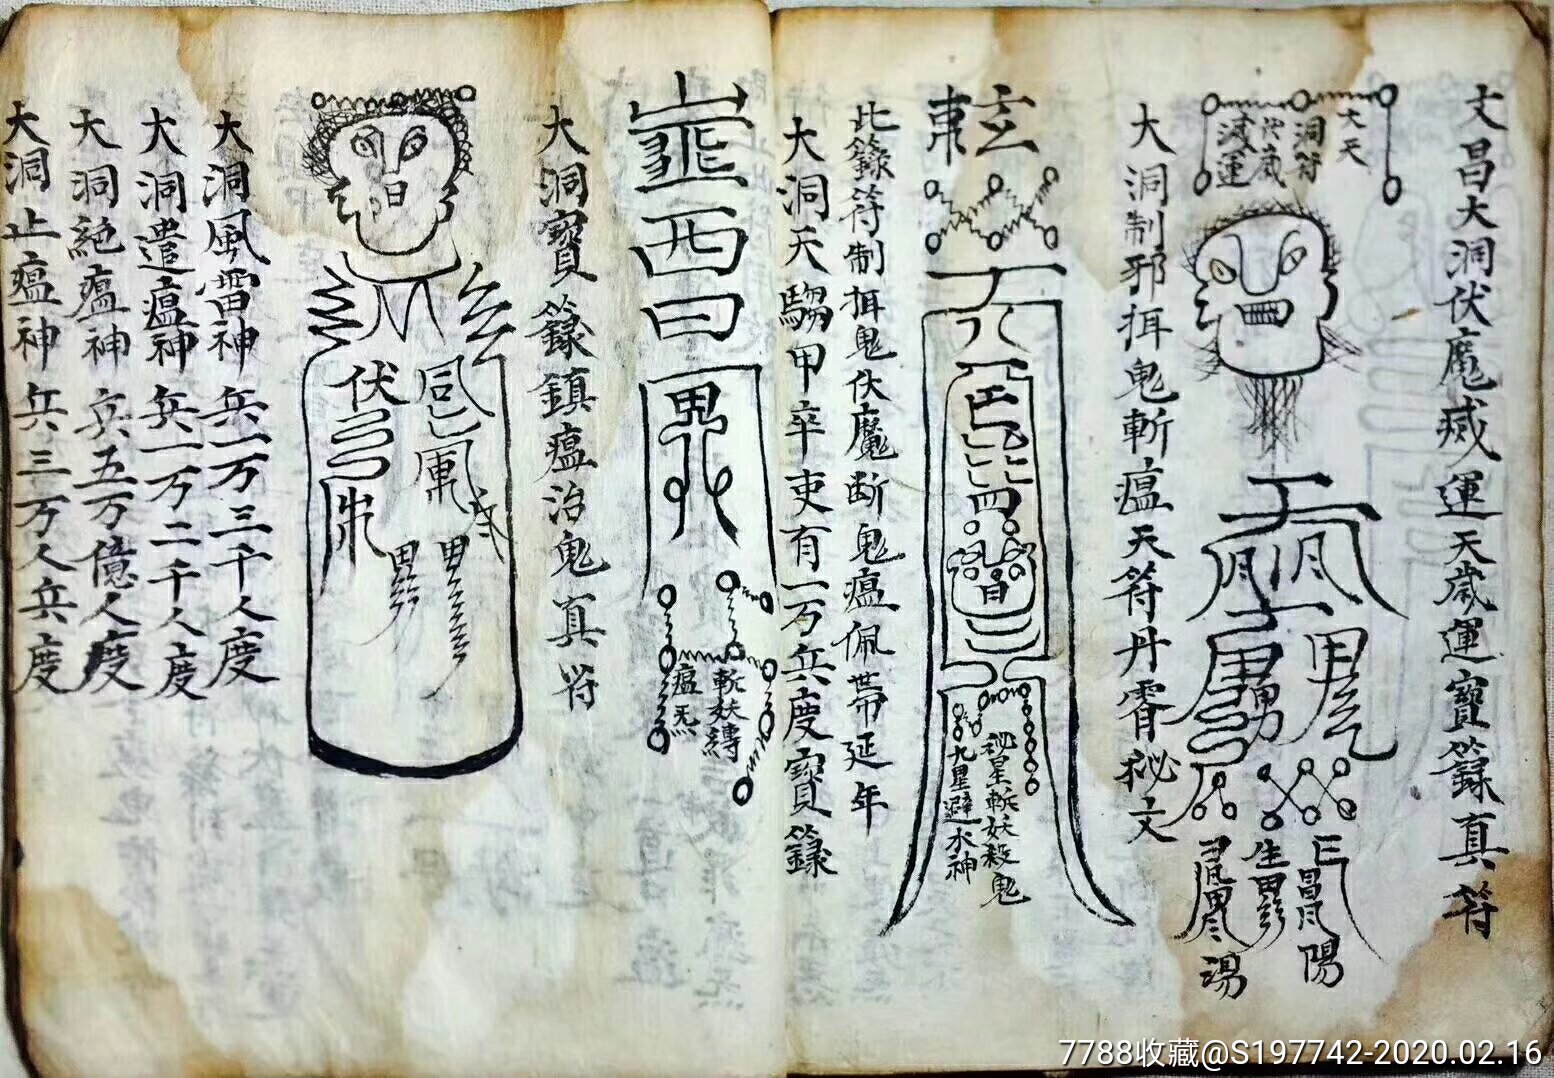 文昌大洞伏魔滅運天歲運寶籙真符
大天
洞符
滅運
生
陽
湯
大洞制邪捪鬼斬瘟天符丹霄祕文
玄
東
祕星斬妖殺鬼
九星避水神
此籙符制捪鬼伏魔断鬼瘟佩帶延年
大洞天騶甲卒吏有一万兵度寶籙
西
曰
鬼
斬妖縛
瘟炁
大洞寶籙鎮瘟治鬼真符
伏
大洞風雷神兵一万三千人度
大洞遣瘟神兵一万二千人度
大洞絕瘟神兵五万億人度
大洞止瘟神兵三万人兵度
7788收藏@S197742-2020.02.16